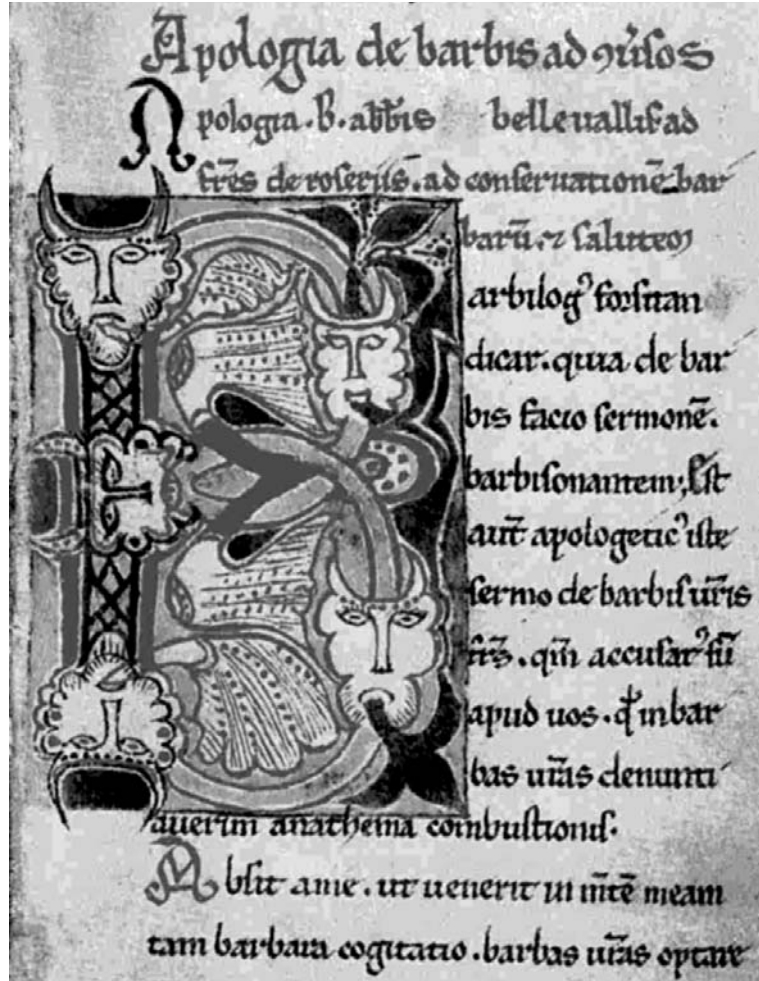 Apologia de barbis ad ꝯuͥsos
Apologia . B . abb̄is belleuallis ad
fr̄es de roseriis . ad conseruationē bar
barū . ⁊ salutem
arbilogꝰ forsitan
dicar . quia de bar
bis facio sermonē .
barbisonantem ; Est
aut̄ apologeticꝰ iste
sermo de barbis ur̄is
fr̄s . qm̄ accusatꝰ sū
apud uos . qd̄ in bar
bas ur̄as denunti
auerim anathema combustionis .
Absit a me . ut uenerit in m̄tē meam
tam barbara cogitatio . barbas ur̄as optare